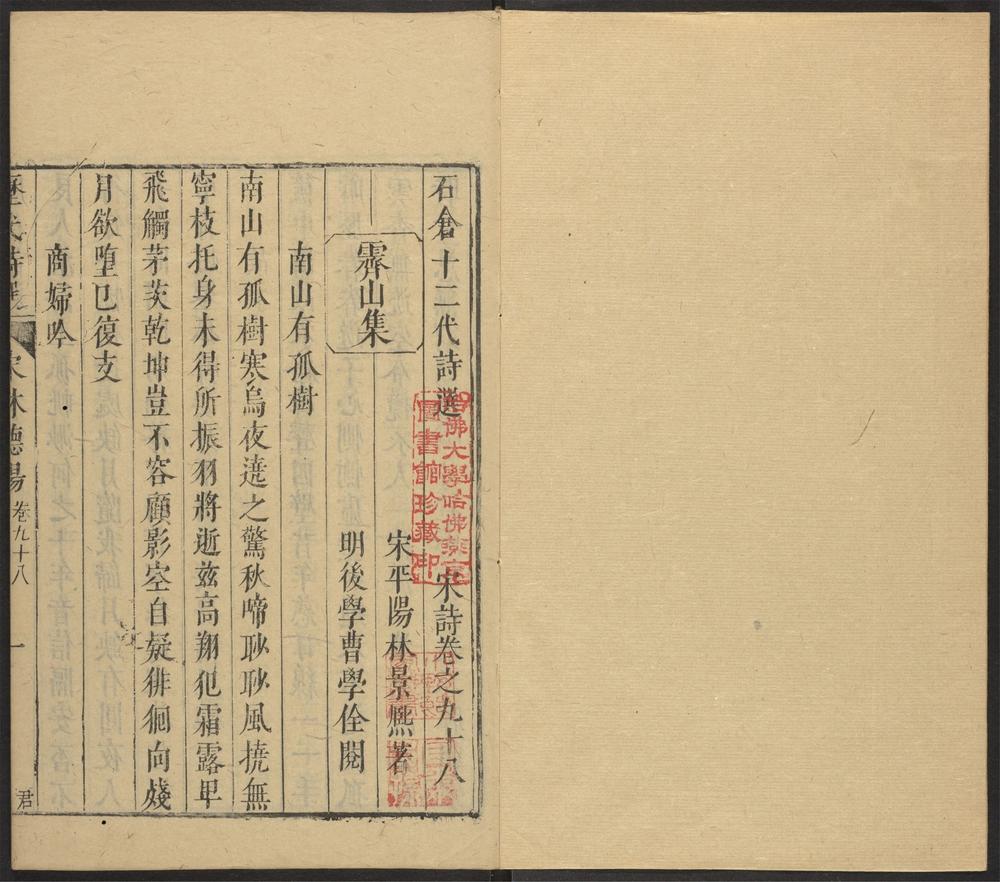 石倉十二代詩選 宋詩卷之九十八
霽山集
宋平陽林景熈著
明後學曹學佺閱
南山有孤樹
南山有孤樹寒烏夜遶之驚秋啼耿耿風撓無
寧枝托身未得所振羽將逝兹高翔犯霜露卑
飛觸茅茨乾坤豈不容顧影空自疑徘徊向殘
月欲堕已復支
商婦吟
歷代詩選 宋林德暘 卷九十八 一 君
哈佛大學哈佛燕京
圖書館珍藏印